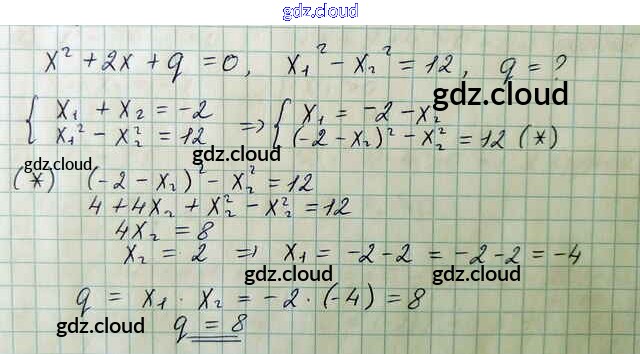 gdz.cloud
x² + 2x + q = 0, x₁² - x₂² = 12, q = ?
gdz.cloud
{ x₁ + x₂ = -2 => { x₁ = -2 - x₂
x₁² - x₂² = 12 (-2 - x₂)² - x₂² = 12 (*)
gdz.cloud gdz.cloud
(*) (-2 - x₂)² - x₂² = 12
4 + 4x₂ + x₂² - x₂² = 12
4x₂ = 8
x₂ = 2 => x₁ = -2 - 2 = -2 - 2 = -4
gdz.cloud gdz.cloud
q = x₁ · x₂ = -2 · (-4) = 8
gdz.cloud
q = 8